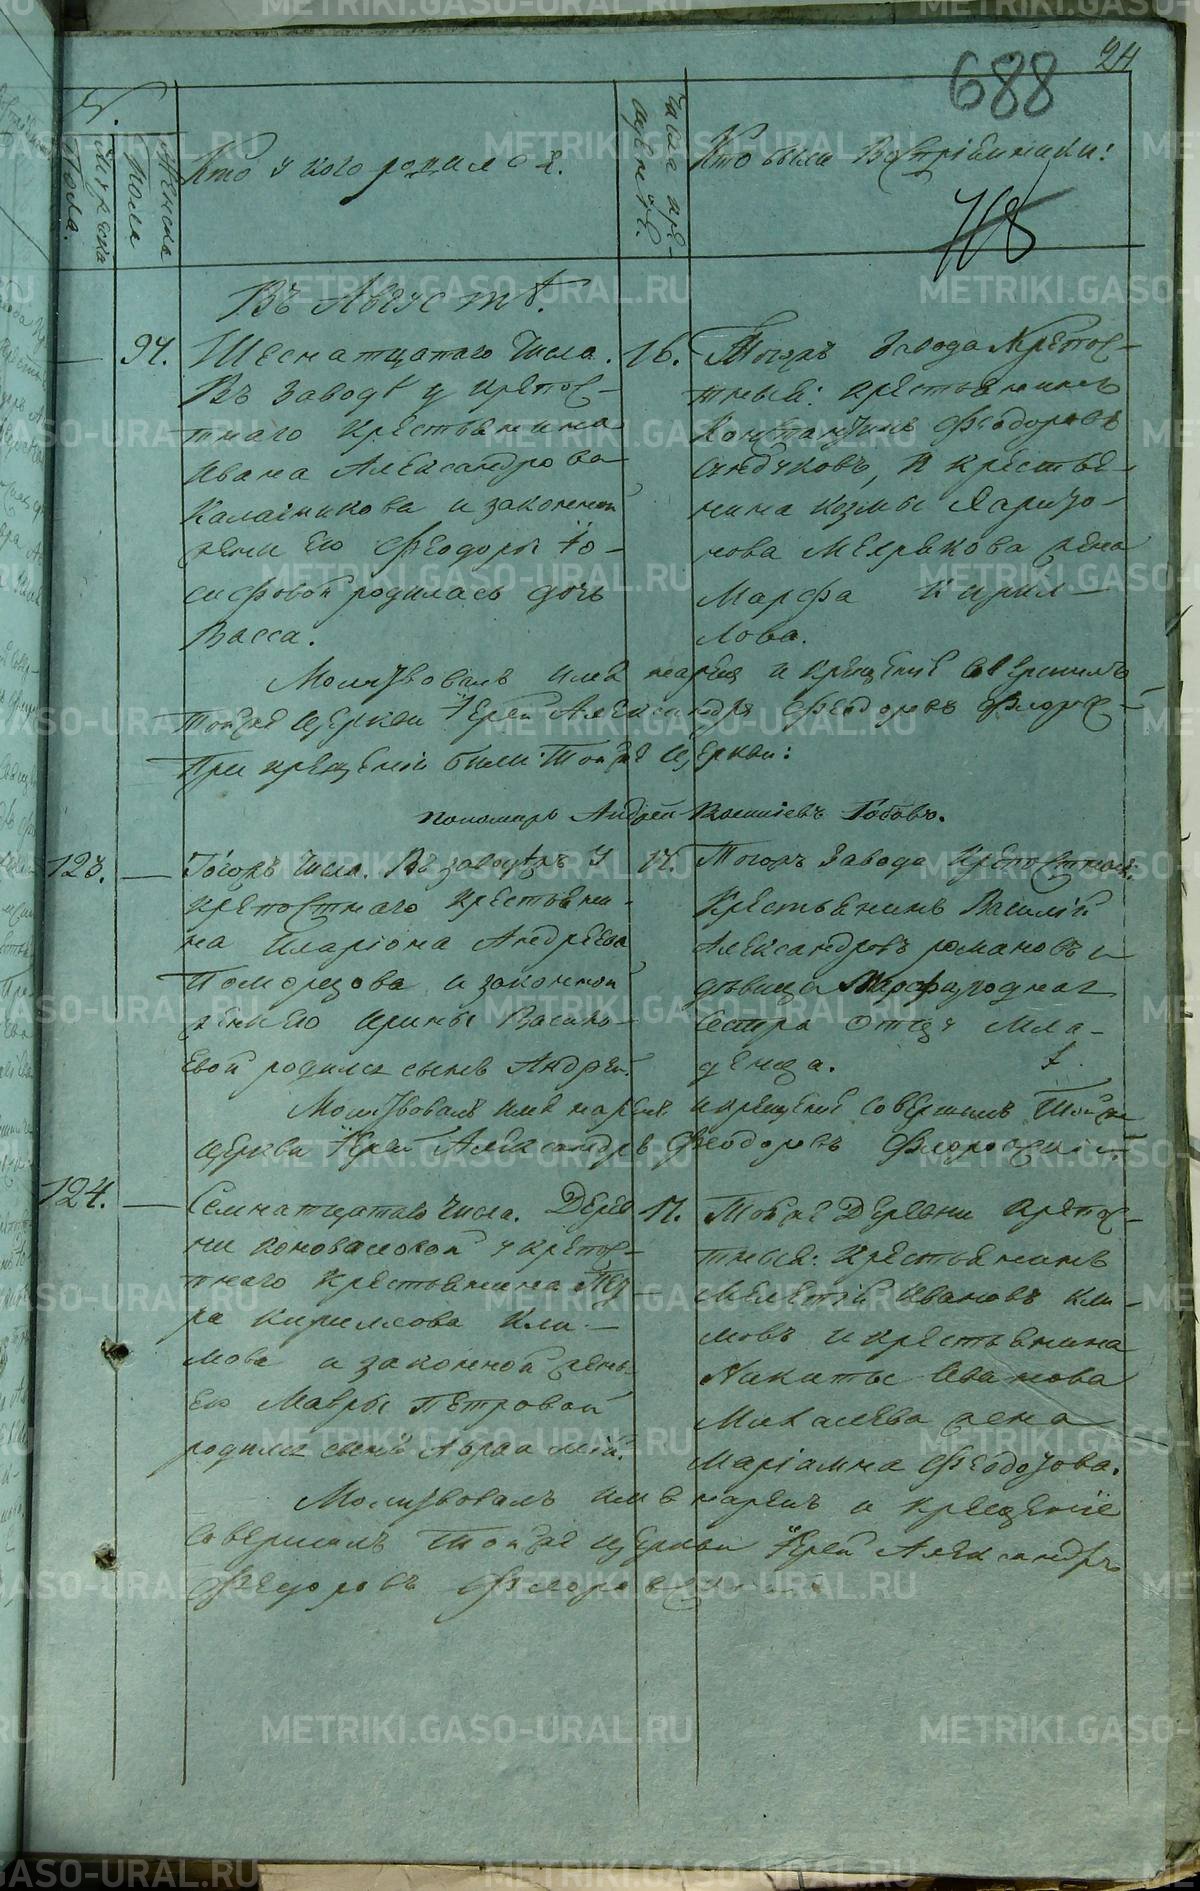 24
688
№.
Мужеска Пола.
Женска Пола
Кто у кого родился.
Числа крещенія.
Кто были Воспріемники:
708
Въ Августѣ.
94.
Шеснатцатаго Числа.
Въ заводѣ у крѣпос-
тнаго крестьянина
Ивана Александрова
Калашникова и законной
жены ею Феодоры Іо-
сифовой родилась дочь
Васса.
16.
Тогожъ Завода Крѣпос-
тныя: крестьянинъ
Константинъ Феодоровъ
и крестья-
нина Козмы
жена
Марфа Кирил-
лова.
Молитвовалъ имя нарекъ и крещеніе совершилъ
тойже церкви Іерей Александръ Феодоровъ
При крещеніи были: тойже церкви:
пономарь Андрей
123.
Тогожъ Числа. Въ заводѣ У
крепостнаго крестьяни-
на Иларіона Андреева
Поморцова и законной
жены ею Ирины Василь-
евой родился сынъ Андрей.
17.
Тогожъ Завода Крѣпостныя:
Крестьянинъ Василій
Александровъ романовъ и
дѣвица Марфа родная
Сестра Отцу Мла-
денца.
Молитвовалъ имя нарекъ и крещеніе совершилъ Тойже
церкви Іерей Александръ Феодоровъ
124.
Семнатцатаго Числа. Дерев
ни Коноваловой у крѣпос-
тнаго Крестьянина Пет-
ра Кирилова Кли-
мова и законной жены
ею Мавры Петровой
родился сынъ Авраамій.
17.
Тойже Деревни Крѣпос-
тныя: Крестьянинъ
Мелетій Ивановъ Кли-
мовъ и крестьянина
Никиты Иванова
Михалева жена
Маріамна Феодотова.
Молитвовалъ имя нарекъ и крещеніе
совершилъ тойже церкви Іерей Александръ
Феодоровъ
METRIKI.GASO-URAL.RU